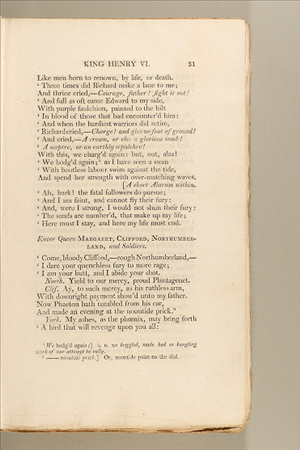 KING HENRY VI. 21
Like men born to renown, by life, or death.
‘ Three times did Richard make a lane to me;
And thrice cried,—Courage, father! fight it out!
‘ And full as oft came Edward to my side,
With purple faulchion, painted to the hilt
‘ In blood of those that had encounter'd him:
‘ And when the hardiest warriors did retire,
‘ Richard cried,—Charge! and give no foot of ground!
‘ And cried,—A crown, or else a glorious tomb!
‘ A sceptre, or an earthly sepulchre!
With this, we charg'd again: but, out, alas!
‘ We bodg'd again; as I have seen a swan
‘ With bootless labour swim against the tide,
And spend her strength with over-matching waves.
[A short Alarum within.
‘ Ah, hark! the fatal followers do pursue;
‘ And I am faint, and cannot fly their fury:
‘ And, were I strong, I would not shun their fury:
‘ The sands are number'd, that make up my life;
‘ Here must I stay, and here my life must end.
Enter Queen MARGARET, CLIFFORD, NORTHUMBER-
LAND, and Soldiers.
‘ Come, bloody Clifford,—rough Northumberland,—
‘ I dare your quenchless fury to more rage;
‘ I am your butt, and I abide your shot.
North. Yield to our mercy, proud Plantagenet.
Clif. Ay, to such mercy, as his ruthless arm,
With downright payment show'd unto my father.
Now Phaeton hath tumbled from his car,
And made an evening at the noontide prick.
York. My ashes, as the phœnix, may bring forth
‘ A bird that will revenge upon you all:
We bodg'd again;] i. e. we boggled, made bad or bungling
work of our attempt to rally.
—— noontide prick.] Or, noontide point on the dial.